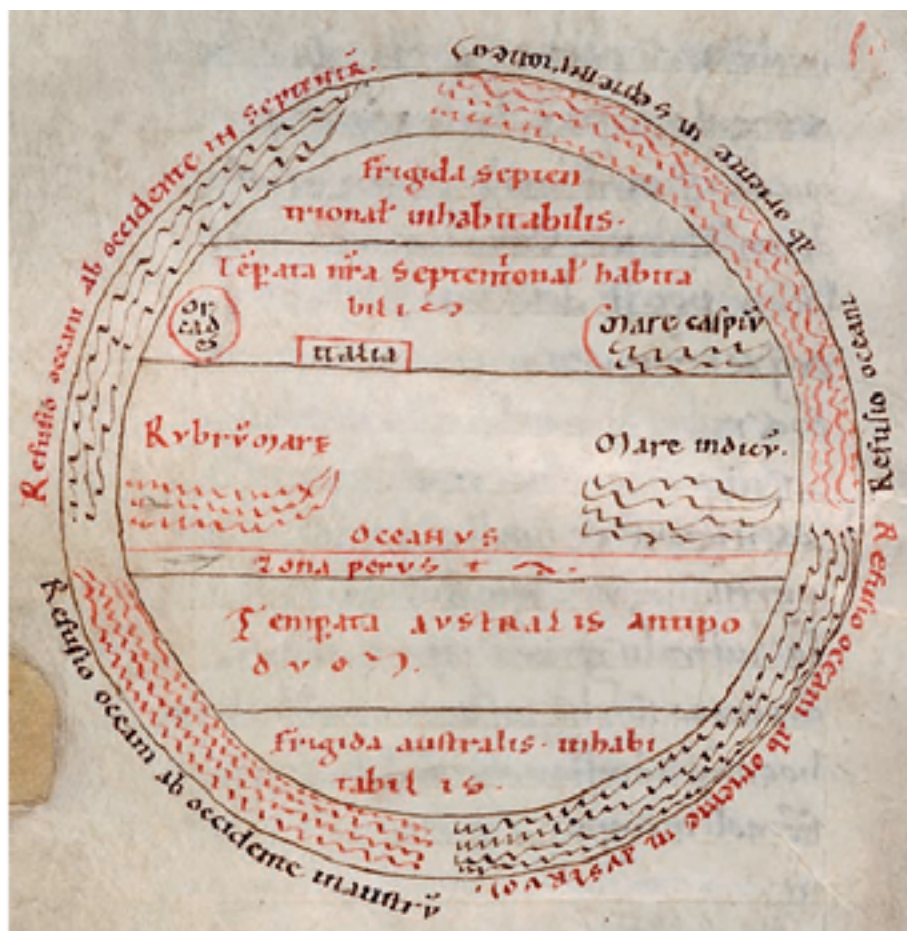 Refusio occeani ab occidente in septentr̄.
Refusio occeani ab oriente in septemtrionē
frigida septen
trional inhabitabilis.
Tēpata nr̄a septentⁱonal habita
bilis
or
cad
es
italia
Mare caspiū
Rubrū mare
Mare indicū.
Oceanus
Zona perusta.
Temperata australis antipo
dus
frigida australis. inhabi
tabilis.
Refusio occeani ab occidente in austrū
Refusio occeani ab oriente in austrum.